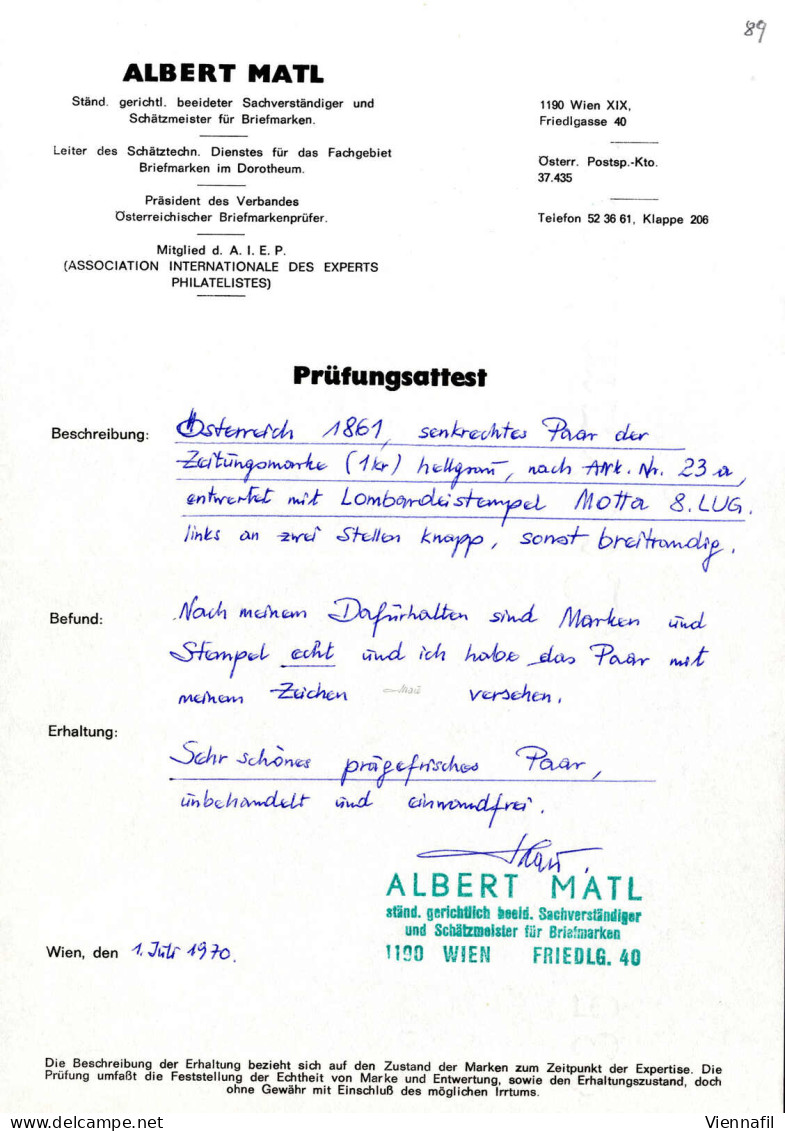 89
ALBERT MATL
Ständ. gerichtl. beeideter Sachverständiger und
Schätzmeister für Briefmarken.
Leiter des Schätztechn. Dienstes für das Fachgebiet
Briefmarken im Dorotheum.
Präsident des Verbandes
Österreichischer Briefmarkenprüfer.
Mitglied d. A. I. E. P.
(ASSOCIATION INTERNATIONALE DES EXPERTS
PHILATELISTES)
1190 Wien XIX,
Friedlgasse 40
Österr. Postsp.-Kto.
37.435
Telefon 52 36 61, Klappe 206
Prüfungsattest
Beschreibung: Österreich 1861, senkrechtes Paar der
Zeitungsmarke (1kr) hellgrau, nach ANK. Nr. 23 a,
entwertet mit Lombardeistempel Motta 8. LUG.
links an zwei Stellen knapp, sonst breitrandig.
Befund: Nach meinem Dafürhalten sind Marken und
Stempel echt und ich habe das Paar mit
meinem Zeichen versehen.
Erhaltung:
Sehr schönes prägefrisches Paar,
unbehandelt und einwandfrei.
ALBERT MATL
ständ. gerichtlich beeid. Sachverständiger
und Schätzmeister für Briefmarken
1190 WIEN FRIEDLG. 40
Wien, den 1. Juli 1970.
Die Beschreibung der Erhaltung bezieht sich auf den Zustand der Marken zum Zeitpunkt der Expertise. Die
Prüfung umfaßt die Feststellung der Echtheit von Marke und Entwertung, sowie den Erhaltungszustand, doch
ohne Gewähr mit Einschluß des möglichen Irrtums.
Viennafil